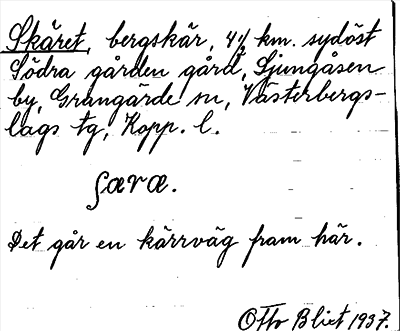 Skäret, bergskär, 4½ km. sydöst
Södra gården gård, Ljungåsen
by, Grangärde sn, Västerbergs-
lags tg, Kopp. l.
ʃæræ.
Det går en kärrväg fram här.
Otto Blixt 1937.